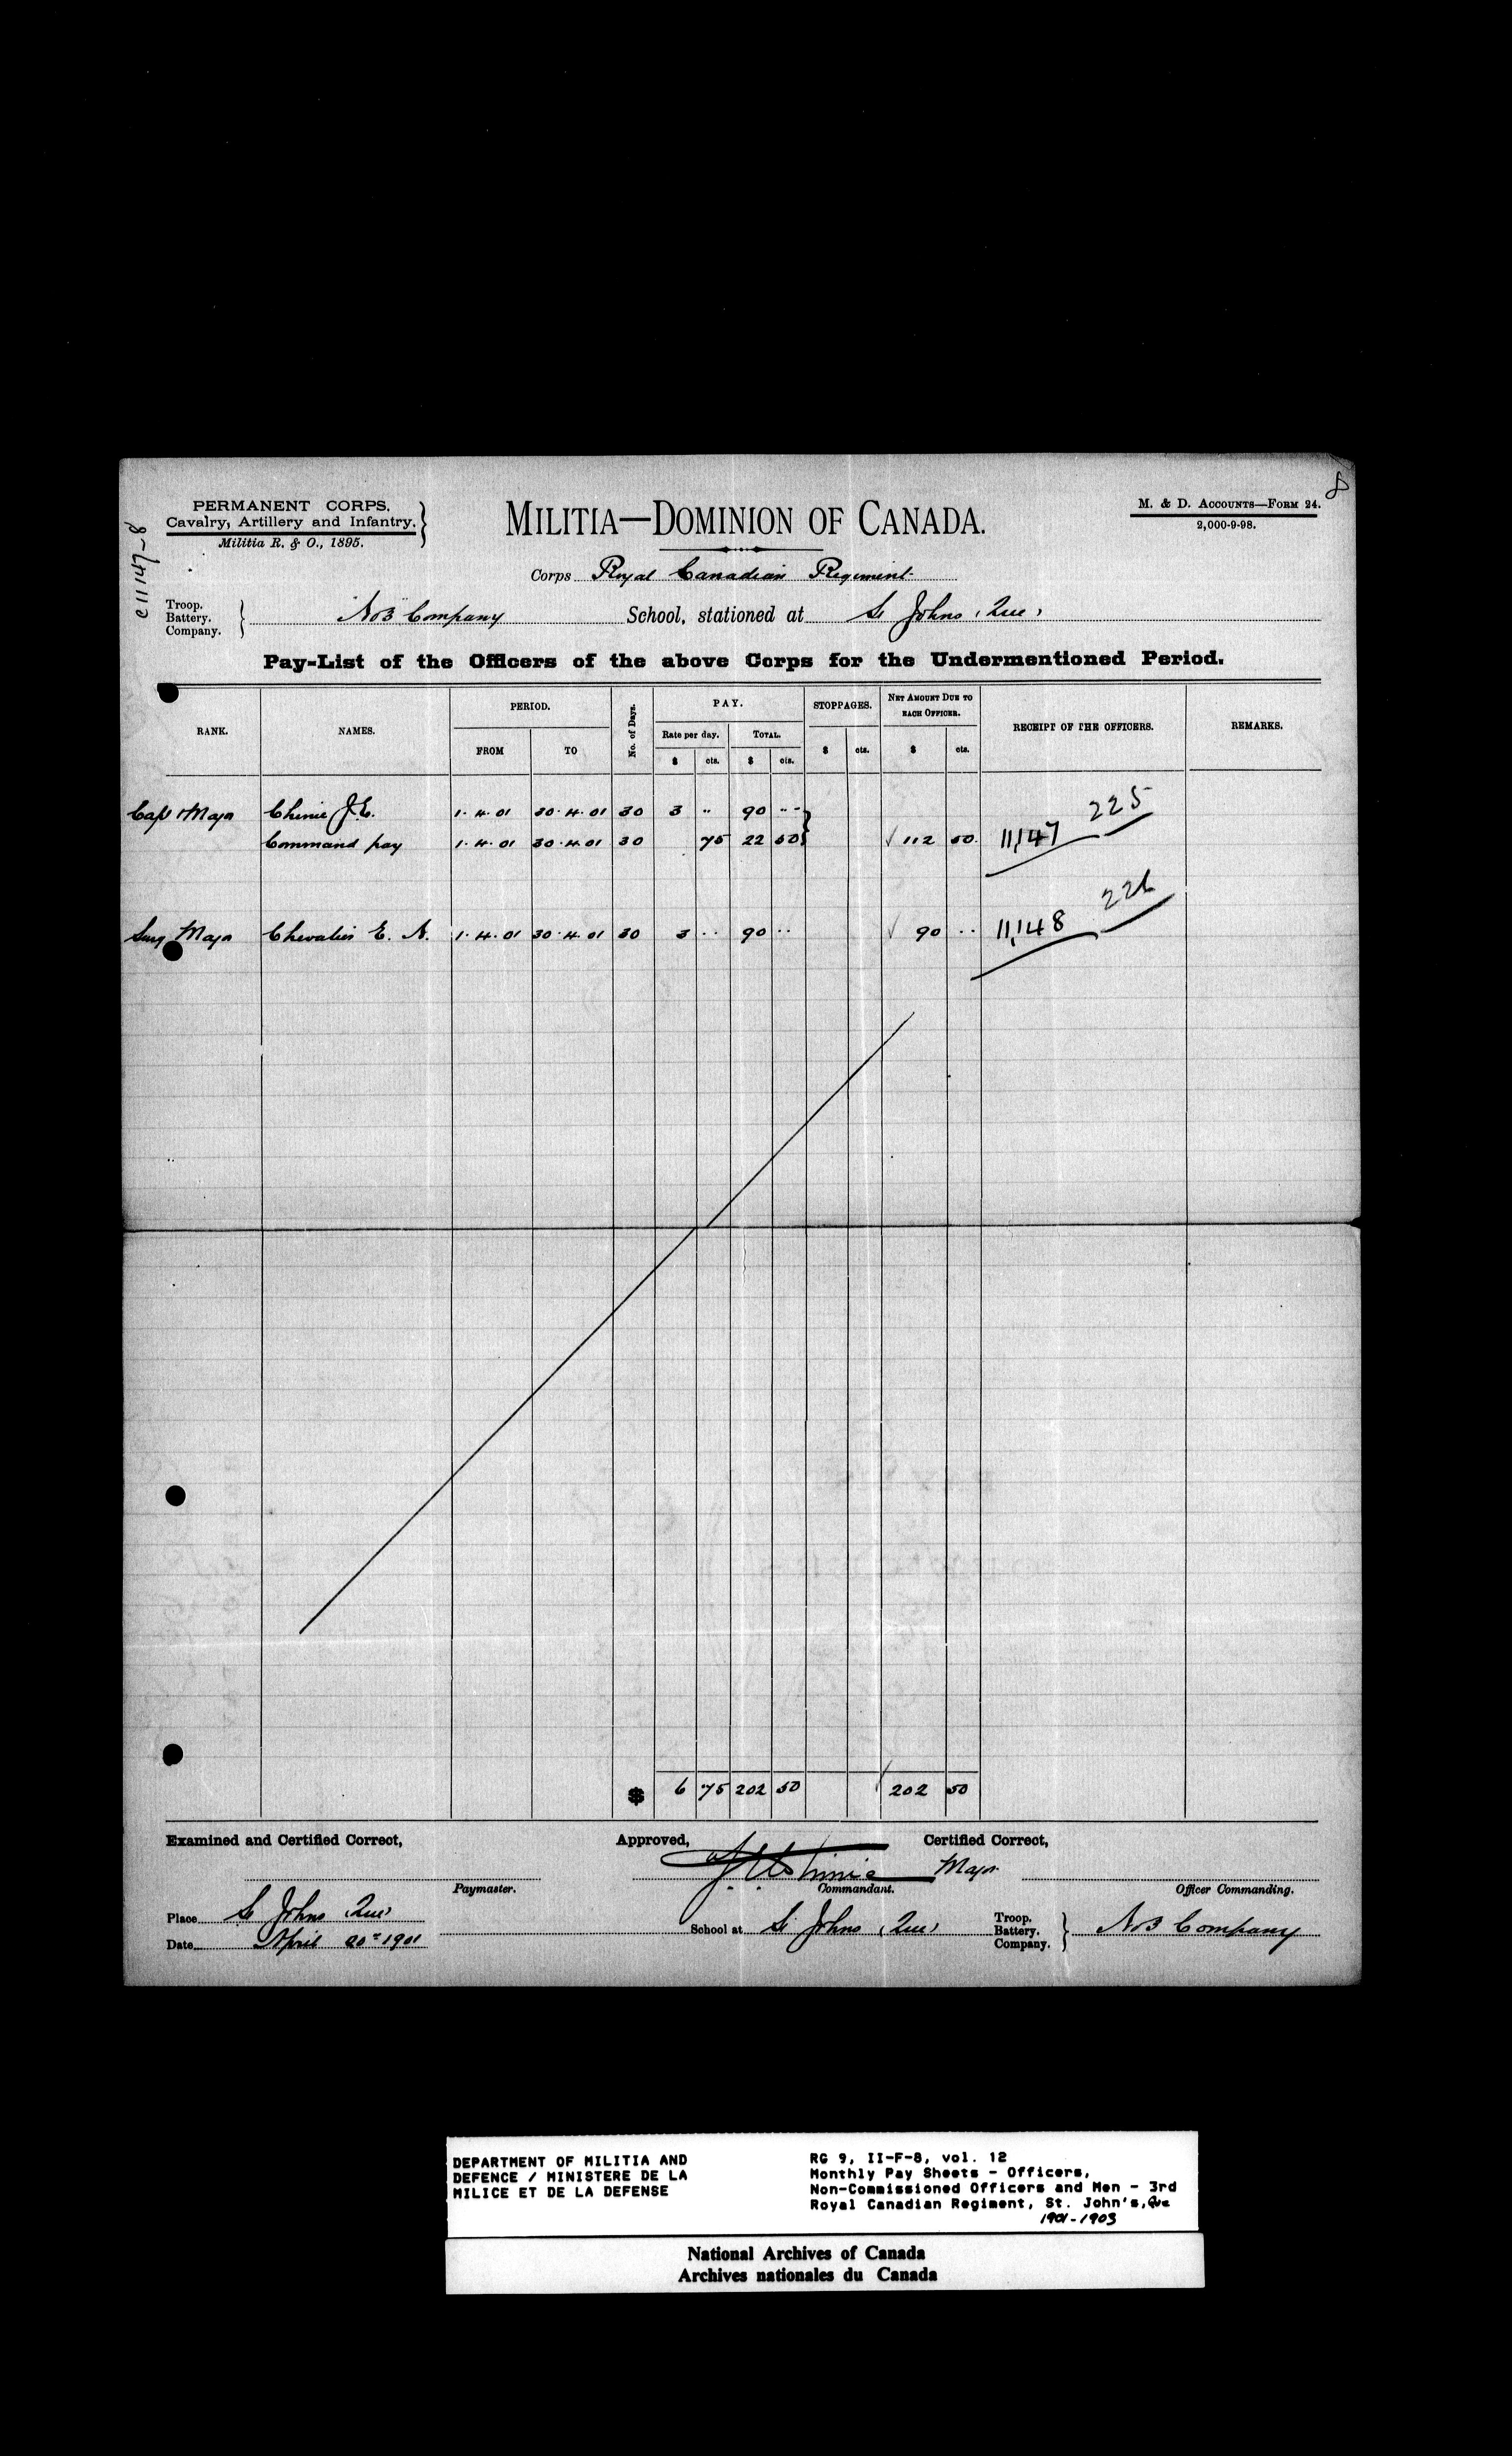 8
PERMANENT CORPS.
Cavalry, Artillery and Infantry.
Militia R. & O., 1895.
c 11147-8
MILITIA—DOMINION OF CANADA.
M. & D. ACCOUNTS—FORM 24.
2,000-9-98.
Corps Royal Canadian Regiment
Troop.
Battery.
Company.
No 3 Company School, stationed at St Johns, Que,
Pay-List of the Officers of the above Corps for the Undermentioned Period.
RANK. NAMES. PERIOD. No. of Days. PAY. STOPPAGES. NET AMOUNT DUE TO EACH OFFICER. RECEIPT OF THE OFFICERS. REMARKS.
FROM TO Rate per day. TOTAL. $ cts. $ cts.
$ cts. $ cts.
Capt & Major Chinic J.E. 1.4.01 30.4.01 30 3 .. 90 .. 225
Command pay 1.4.01 30.4.01 30 75 22 50 112 50 11,147
Surg Major Chevalier E. N. 1.4.01 30.4.01 30 3 .. 90 .. 90 .. 11,148 226
$ 6 75 202 50 202 50
Examined and Certified Correct, Approved, Certified Correct,
Major
Paymaster. Commandant. Officer Commanding.
Place St Johns Que,
School at St Johns, Que,
Troop.
Battery.
Company.
No 3 Company
Date April 20th 1901
DEPARTMENT OF MILITIA AND
DEFENCE / MINISTERE DE LA
MILICE ET DE LA DEFENSE
RG 9, II-F-8, vol. 12
Monthly Pay Sheets - Officers,
Non-Commissioned Officers and Men - 3rd
Royal Canadian Regiment, St. John's, Que
1901-1903
National Archives of Canada
Archives nationales du Canada